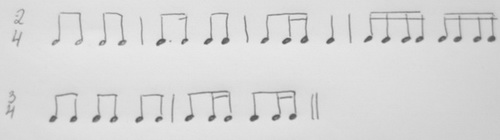 2
4
3
4